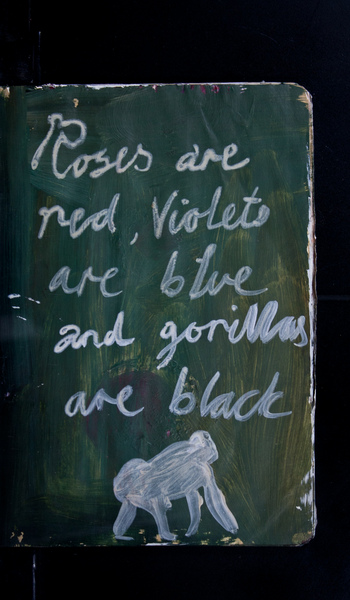 Roses are
red, Violets
are blue
and gorillas
are black